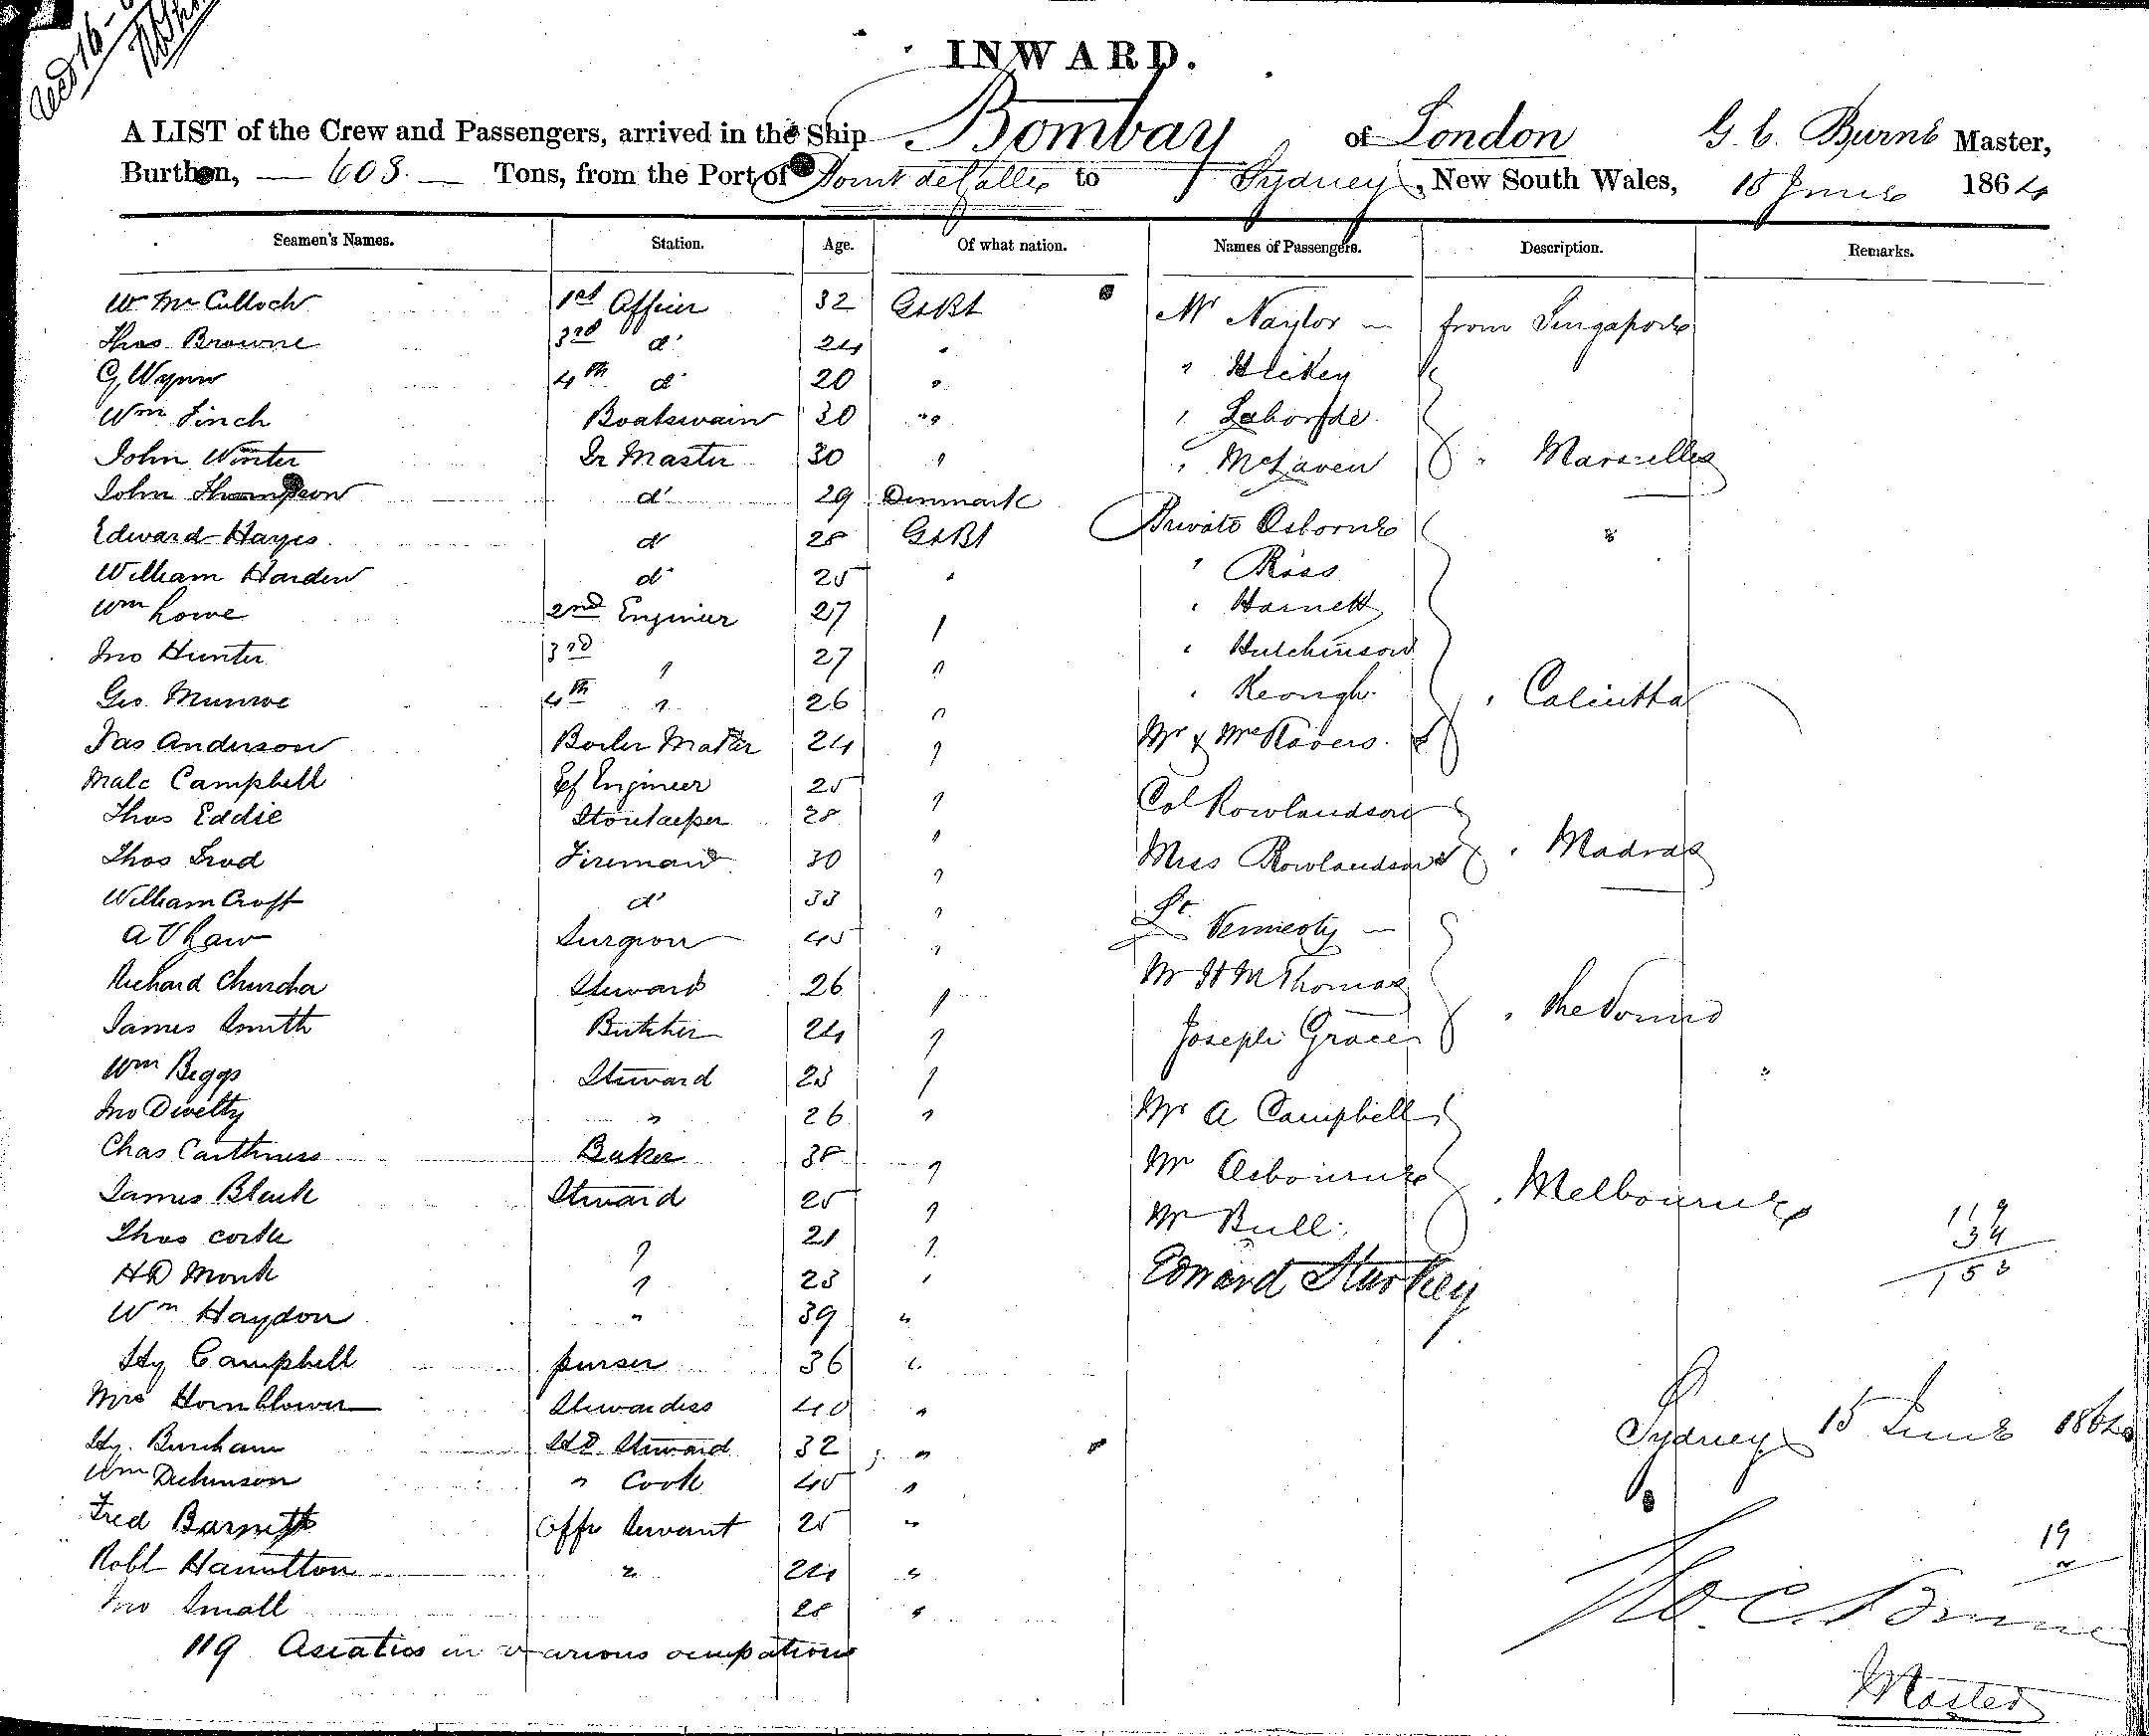 INWARD.
A LIST of the Crew and Passengers, arrived in the Ship Bombay of London G. C. Burns Master,
Burthen, 608. Tons, from the Port of Point de Galle to Sydney, New South Wales, 15 June 1864
Seamen's Names. Station. Age. Of what nation. Names of Passengers. Description. Remarks.
W McCulloch 1st Officer 32 Gt Bt Mr Naylor from Singapore
Thos Browne 3rd do 24 "
G Wynn 4th do 20 " " Hickey
Wm Finch Boatswain 30 " " Laborde
John Winter Qr Master 30 " " McLaven " Marseilles
John Thompson do 29 Denmark
Edward Hayes do 28 Gt Bt Private Osborne "
William Harden do 25 " " Ross
Wm Lowe 2nd Engineer 27 " " Harnett
Jno Hunter 3rd " 27 " " Hutchinson
Geo. Munroe 4th " 26 " " Keough " Calcutta
Jas Anderson Boiler Maker 24 " Mr & Mrs
Malc Campbell Engineer 25 " Col Rowlandson
Thos Eddie Storekeeper 28 "
Thos Fireman 30 " Miss Rowlandson " Madras
William Croft do 33 "
Surgeon 45 "
Richard Churcha Steward 26 " Mr H M Thomas
James Smith Butcher 24 " Joseph Graces " the Sound
Wm Beggs Steward 23 "
Jno Divelty " 26 " Mr A Campbell
Chas Caithness Baker 38 " Mr Osbourne
James Black Steward 25 " Mr Bull " Melbourne
Thos Corke " 21 "
H D Monk " 23 " Edward Starkey
119
34
153
Wm Haydon " 39 "
Hy Campbell purser 36 "
Mrs Hornblower Stewardess 40 "
Hy. Burcham Hd Steward 32 " Sydney 15 June 1864
Wm Dickinson " Cook 45 "
Fred Barnett Offr Servant 25 "
19
Robt Hamilton " 24 "
Jno Small 28 "
119 Asiatics in various ocupations
Master